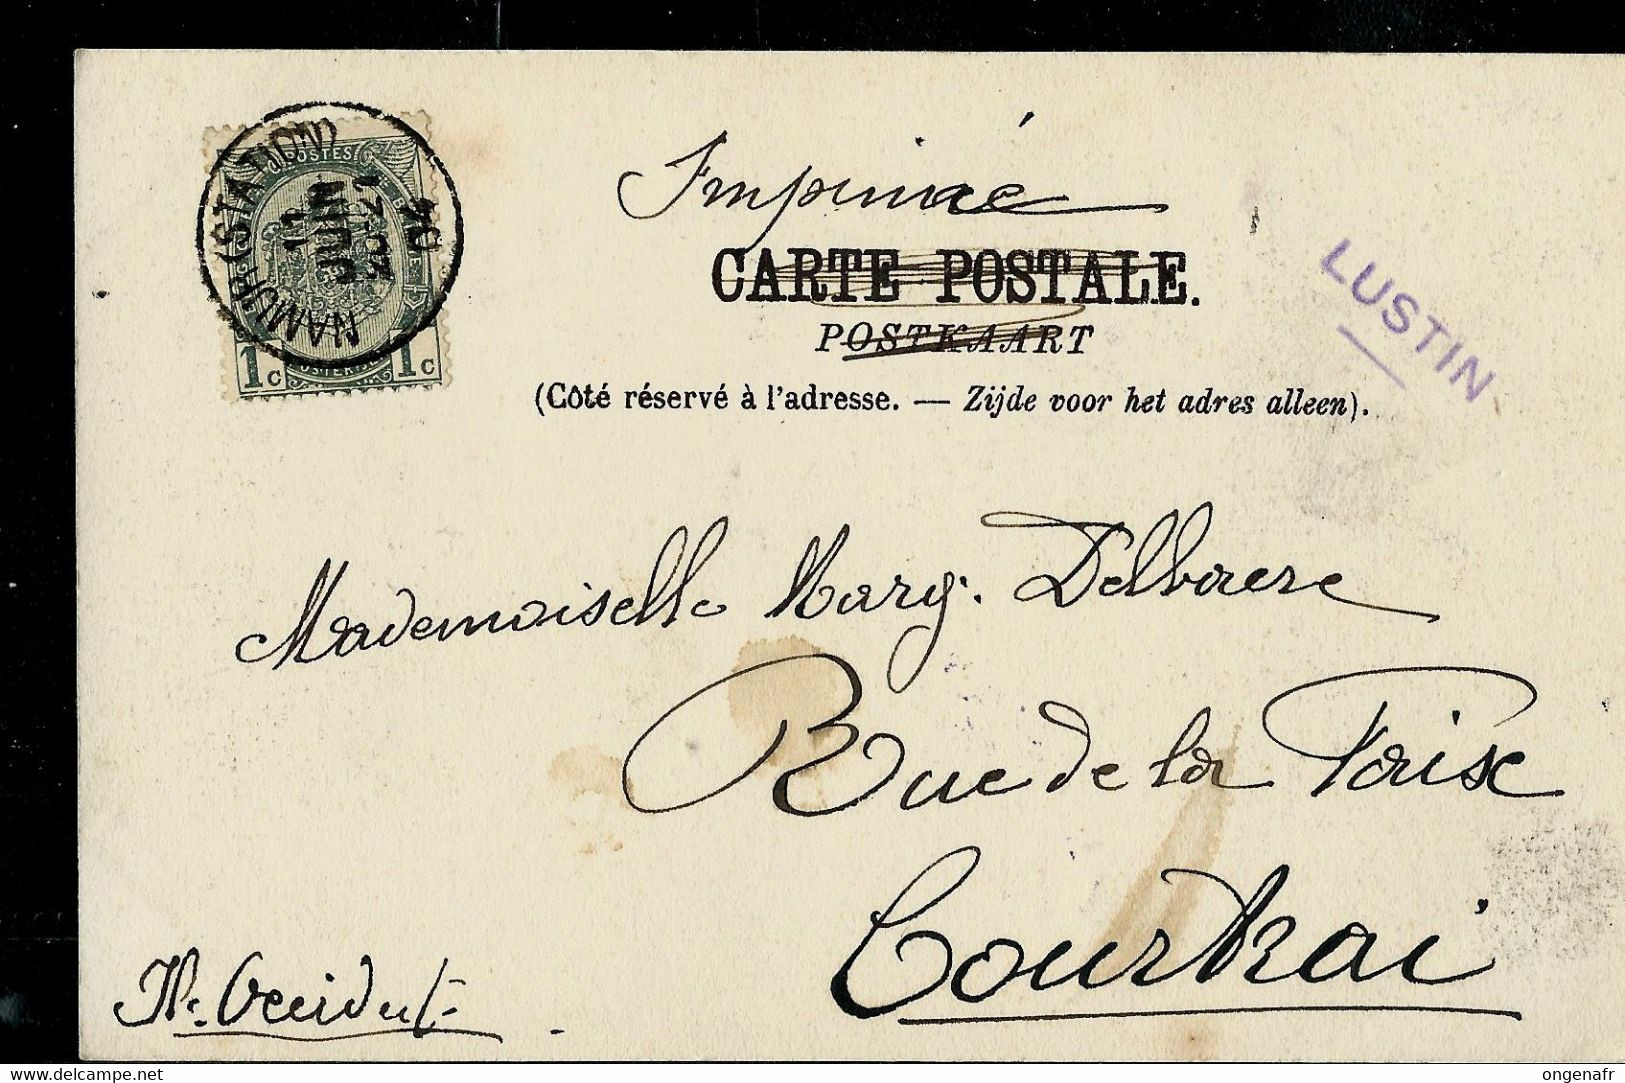 Imprimé
CARTE POSTALE.
POSTKAART
(Côté réservé à l'adresse. — Zijde voor het adres alleen).
LUSTIN
NAMUR (STATION)
11
JUIN
20-21
04
POSTES
1c 1c
Mademoiselle Marg. Delbaere
Rue de la Paix
Courtrai
delcampe.net
ongenafr